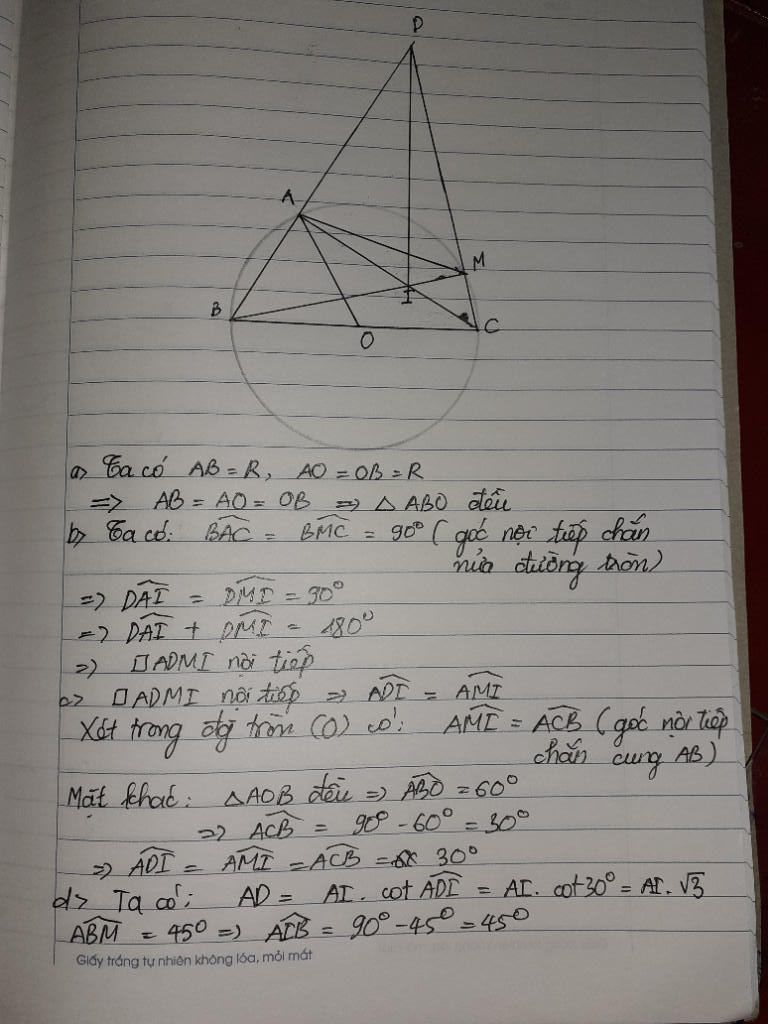 D
A
M
I
B
O
C
a> Ta có AB = R, AO = OB = R
=> AB = AO = OB => △ ABO đều
b> Ta có: \widehat{BAC} = \widehat{BMC} = 90° (góc nội tiếp chắn
nửa đường tròn)
=> \widehat{DAI} = \widehat{DMI} = 90°
=> \widehat{DAI} + \widehat{DMI} = 180°
=> □ADMI nội tiếp
c> □ADMI nội tiếp => \widehat{ADI} = \widehat{AMI}
Xét trong đg tròn (O) có: \widehat{AMI} = \widehat{ACB} (góc nội tiếp
chắn cung AB)
Mặt khác: △AOB đều => \widehat{ABO} = 60°
=> \widehat{ACB} = 90° - 60° = 30°
=> \widehat{ADI} = \widehat{AMI} = \widehat{ACB} = 30°
d> Ta có: AD = AI . cot \widehat{ADI} = AI. cot 30° = AI. √3
\widehat{ABM} = 45° => \widehat{AIB} = 90° - 45° = 45°
Giấy trắng tự nhiên không lóa, mỏi mắt